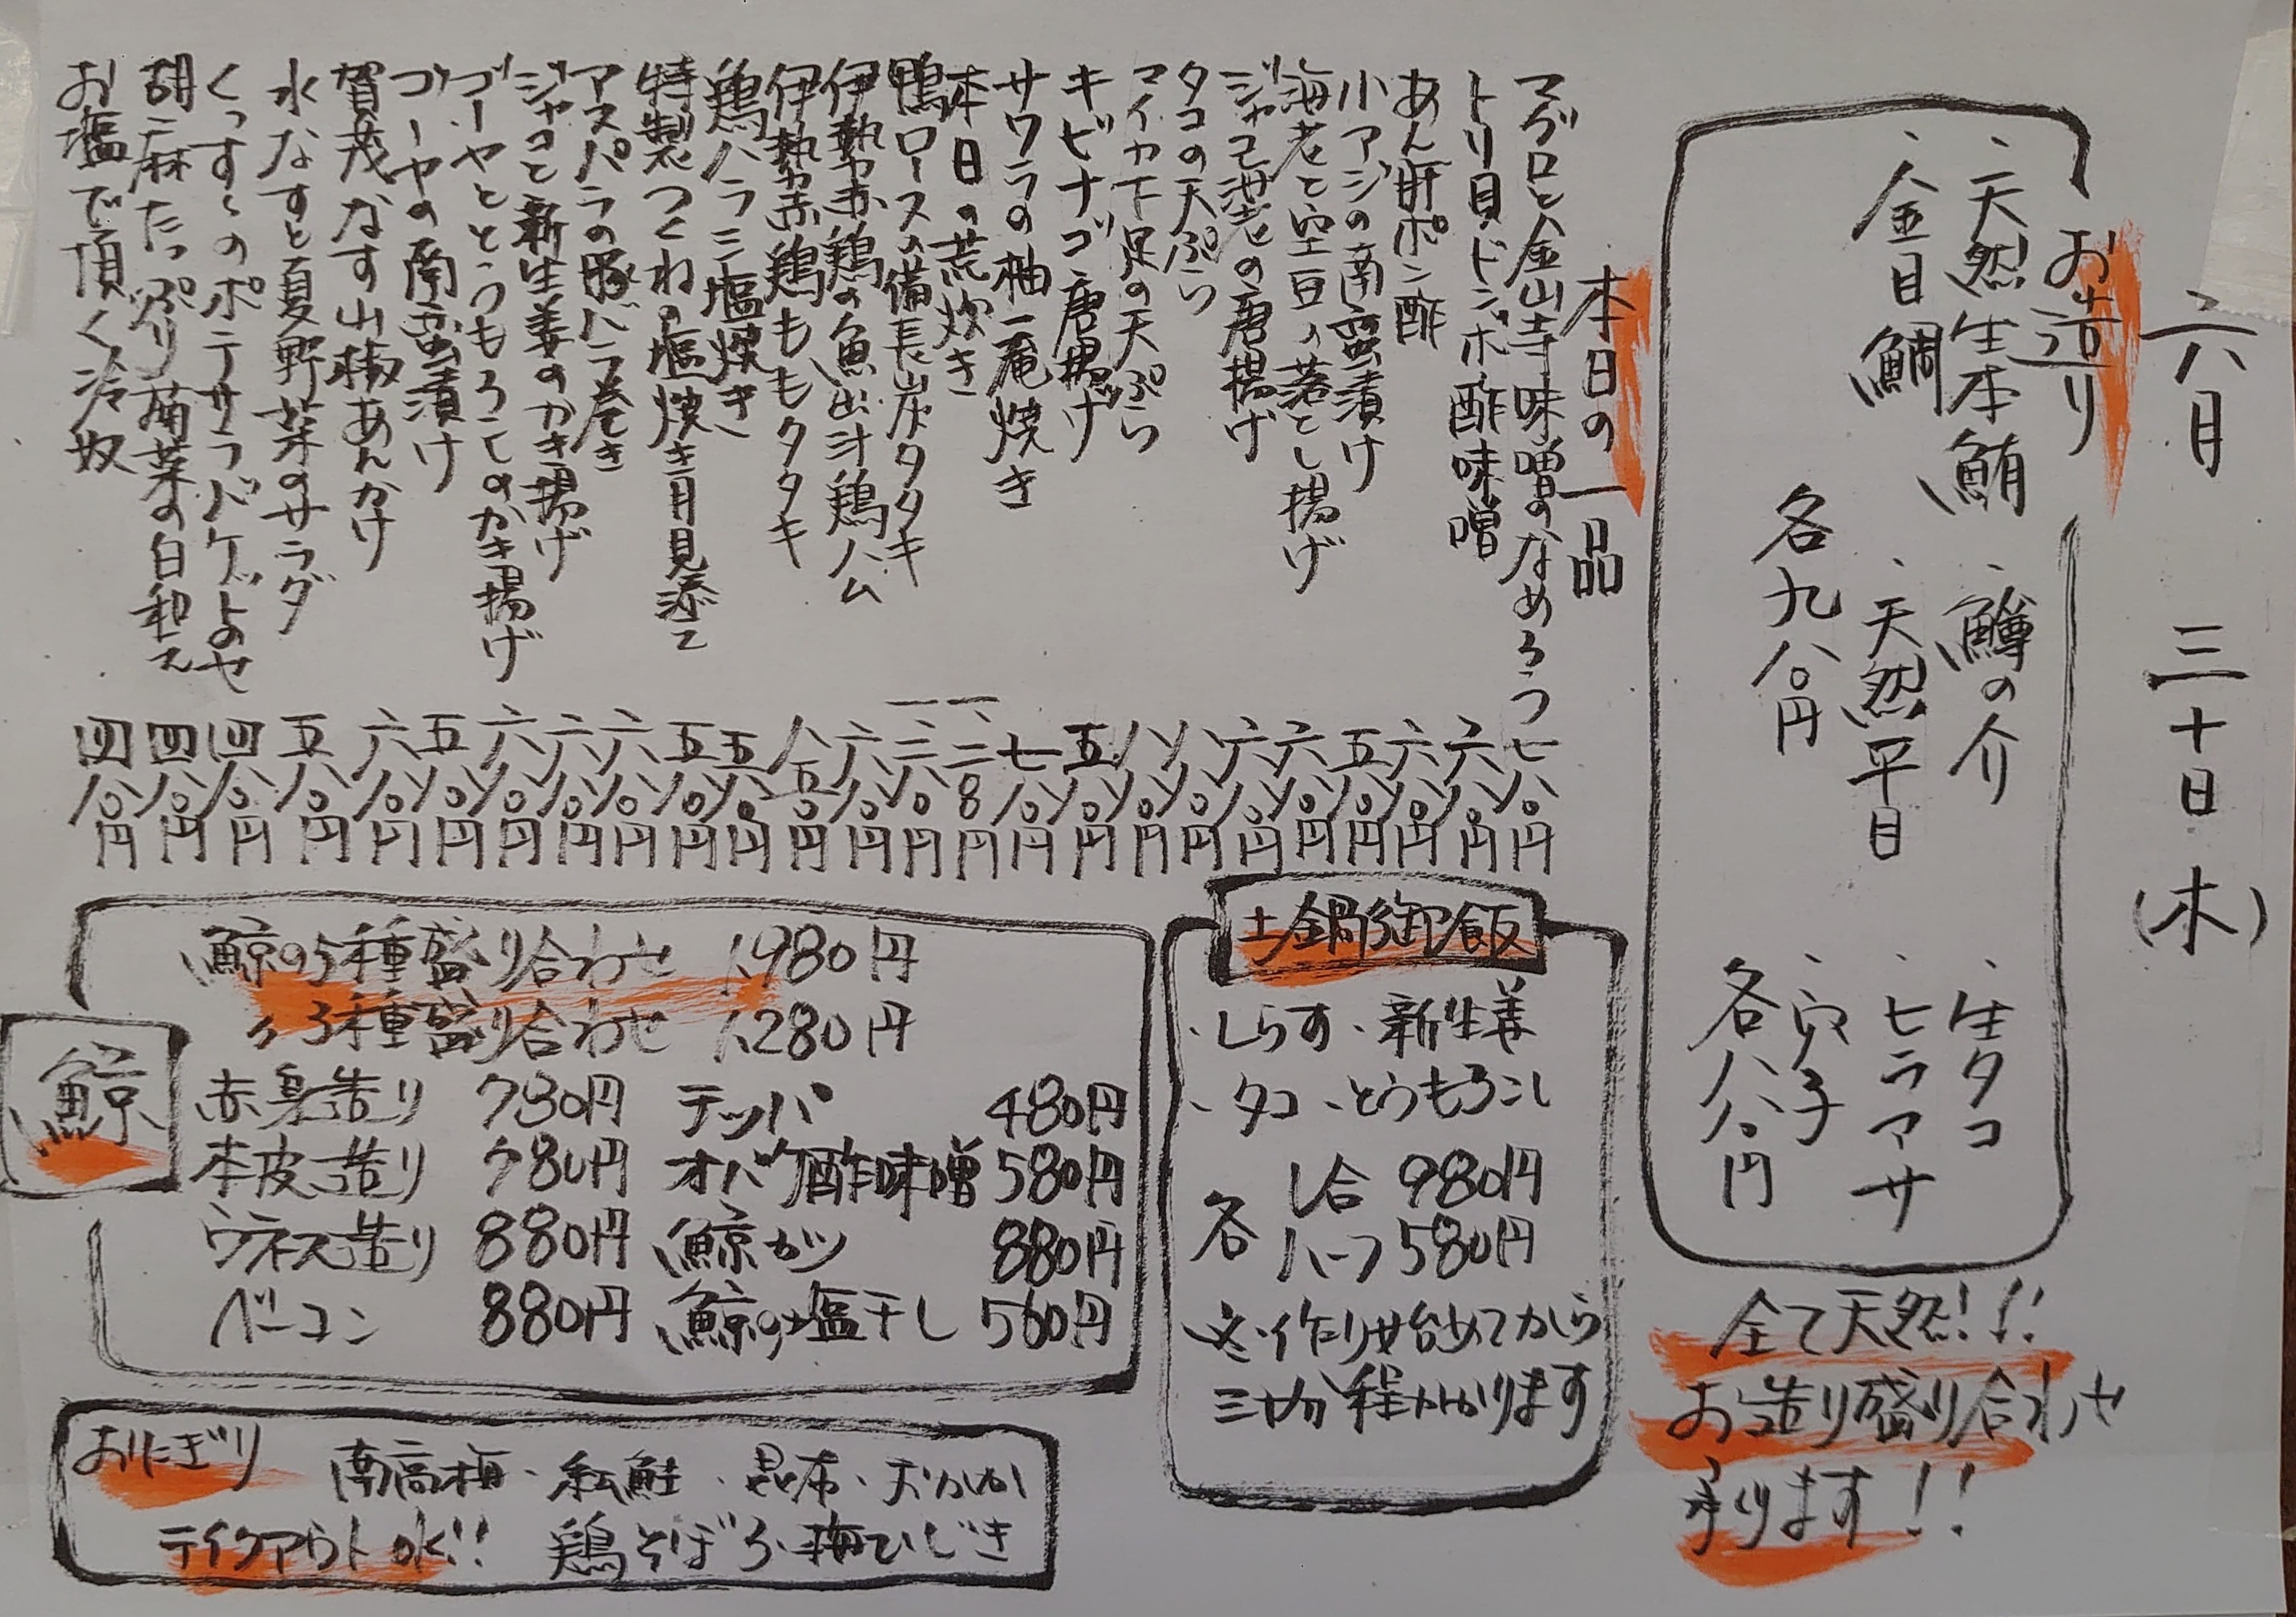 六月 三十日(木)
お造り
・天然生本鮪 ・鱒の介 ・生タコ
・金目鯛 ・天然平目 ・ヒラマサ
・穴子
各九八〇円
各八八〇円
全て天然!!!
お造り盛り合わせ
承ります!!
本日の一品
マグロと金山寺味噌のなめろう 七八〇円
トリ貝ドンボ酢味噌 六八〇円
あん肝ポン酢 六八〇円
小アジの南蛮漬け 五八〇円
海老と空豆の落とし揚げ 六八〇円
ジャコ海老の唐揚げ 六八〇円
タコの天ぷら 八八〇円
マイカ下足の天ぷら 八八〇円
キビナゴ唐揚げ 五八〇円
サワラの柚一庵焼き 七八〇円
本日の荒炊き 一、二八〇円
鴨ロースの備長炭タタキ 一、三八〇円
伊勢赤鶏の魚出汁鶏ハム 六八〇円
伊勢赤鶏ももタタキ 八五〇円
鶏ハラミ塩焼き 五八〇円
特製つくねの塩焼き月見添て 五八〇円
アスパラの豚バラ巻き 六八〇円
ジャコと新生姜のかき揚げ 六八〇円
ゴーヤととうもろこしのかき揚げ 六八〇円
ゴーヤの南蛮漬け 五八〇円
賀茂なす山椒あんかけ 六八〇円
水なすと夏野菜のサラダ 五八〇円
くっすんのポテサラバケットのせ 四八〇円
胡麻たっぷり菊菜の白和え 四八〇円
お塩で頂く冷奴 四八〇円
土鍋御飯
・しらす・新生姜
・タコ・とうもろこし
各 1合 980円
ハーフ 580円
※作り始めてから
三十分程かかります
鯨
鯨の5種盛り合わせ 1,980円
〃 3種盛り合わせ 1,280円
赤身造り 780円 テッパ 480円
本皮造り 780円 オバケ酢味噌 580円
ウネス造り 880円 鯨カツ 880円
ベーコン 880円 鯨の塩干し 560円
おにぎり 南高梅・紅鮭・昆布・おかか
テイクアウトOK!! 鶏そぼろ・梅ひじき